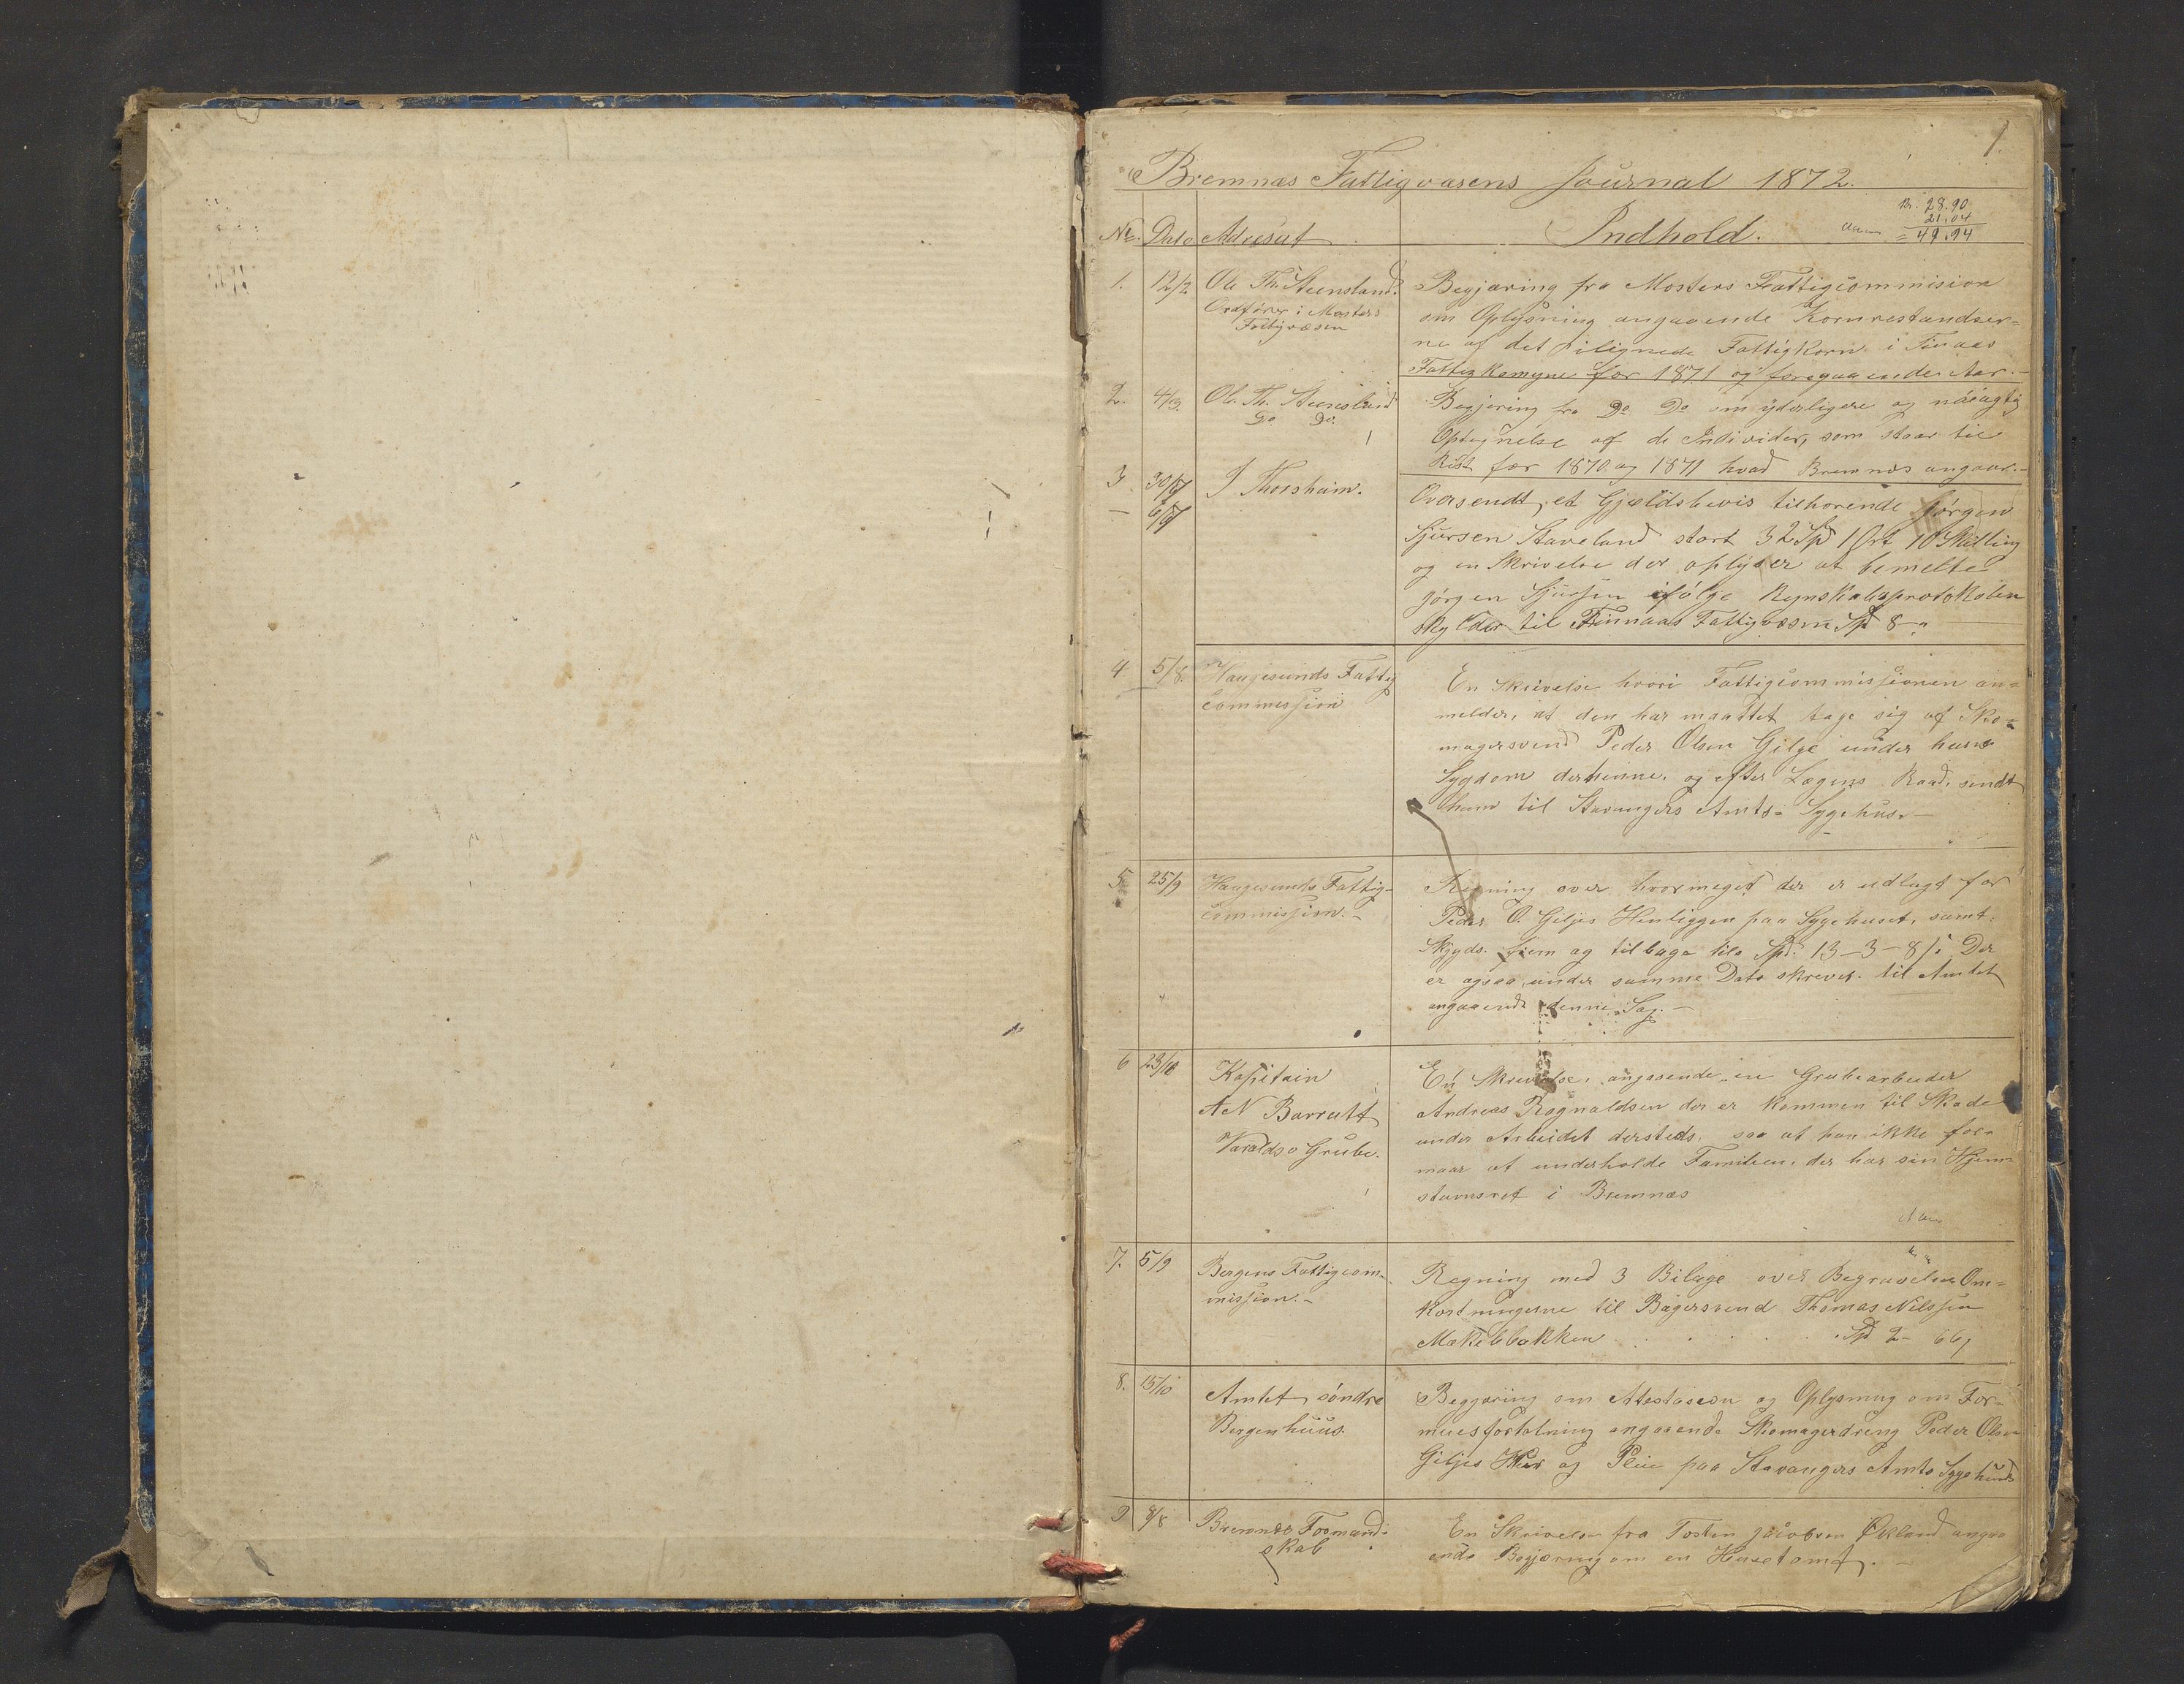 1.
Bremnæs Fattigvæsens Journal 1872.
Br. 28.90
21.04
= 49.94
No. Dato Adresat Indhold.
1. 12/2 Ole Th. Steensland.
Ordfører i Mosters
Fattigvæsen
Begjæring fra Mosters Fattigcommision
om Oplysning angaaende Kornrestandser=
ne af det pilignede Fattigkorn i Finaas
Fattigkomyne for 1871 og foregaaende Aar.
2. 4/3. Ole Th. Steensland
Do Do.
Begjering fra Do Do om yderligere og nöiagtig
Optegnelse af de Individer, som staar til
Rest for 1870 og 1871 hvad Bremnæs angaar.-
3 30/6
6/7
J Thorsheim.
Oversendt et Gjældsbevis tilhorende Jörgen
Sjursen Staveland stort 32 Spd 1 Ort 10 Skilling
og en Skrivelse der oplyser at bemelte
Jörgen Sjursen ifölge Regnskabsprotokolen
skylder til Finnaas Fattigvæsen Spd 8-"
4 5/8. Haugesunds Fattig
commission
En Skrivelse hvori Fattigcommissionen an=
melder, at den har maattet tage sig af Sko=
magersvend Peder Olsen Gilje under hans
Sygdom derhenne. og efter Lægens Raad, sendt
ham til Stavangers Amts= Sygehus.-
5 25/9 Haugesunds Fattig-
commission.-
Regning over hvormeget der er udlagt for
Peder O. Giljes Henliggen paa Sygehuset, samt
Skyds. frem og tilbage til Spd. 13-3-8 s. Der
er ogsaa under samme Dato skrevet til Amtet
angaaende denne Sag.-
6 23/10 Kapitain
A N Barratt
Varaldsö Grube.
En Skrivelse, angaaende en Grubearbeider
Andreas Ragnaldsen der er kommen til Skade
under Arbeidet dersteds. saa at han ikke for=
maar at underholde Familien. der har sin Hjem=
stavnsret i Bremnæs
7. 5/9 Bergens Fattigcom=
mission.-
Regning med 3 Bilage over Begravelses Om=
kostningerne til Bagersvend Thomas Nilssen
Mækelbakken . . . . . . Spd 2- 66,
8. 15/10 Amtet söndre
Bergenhuus.
Begjæring om Attestasion og Oplysning om For=
muesforfatning angaaende Skomagerdreng Peder Olsen
Giljes Kur og Pleie paa Stavangers Amts Sygehuus
9 8/8 Bremnæs Formand=
skab
En Skrivelse fra Tosten Jacobsen Økland angaa
ende Begjæring om en Husetomt.-